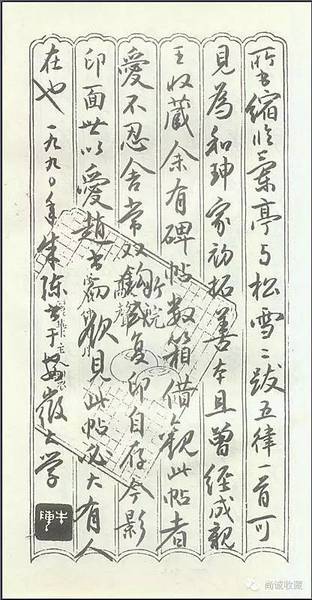 所书缩临兰亭与松雪二跋五律一首可
见为和珅家初拓善本且曾经成亲
王收藏余有碑帖数箱借观此帖者
爱不忍舍常双钩或复印自存今影
印面世以爱赵书篇欢见此帖况大有人
在也 一九九〇年 朱陈 书于安徽大学
尚诚收藏